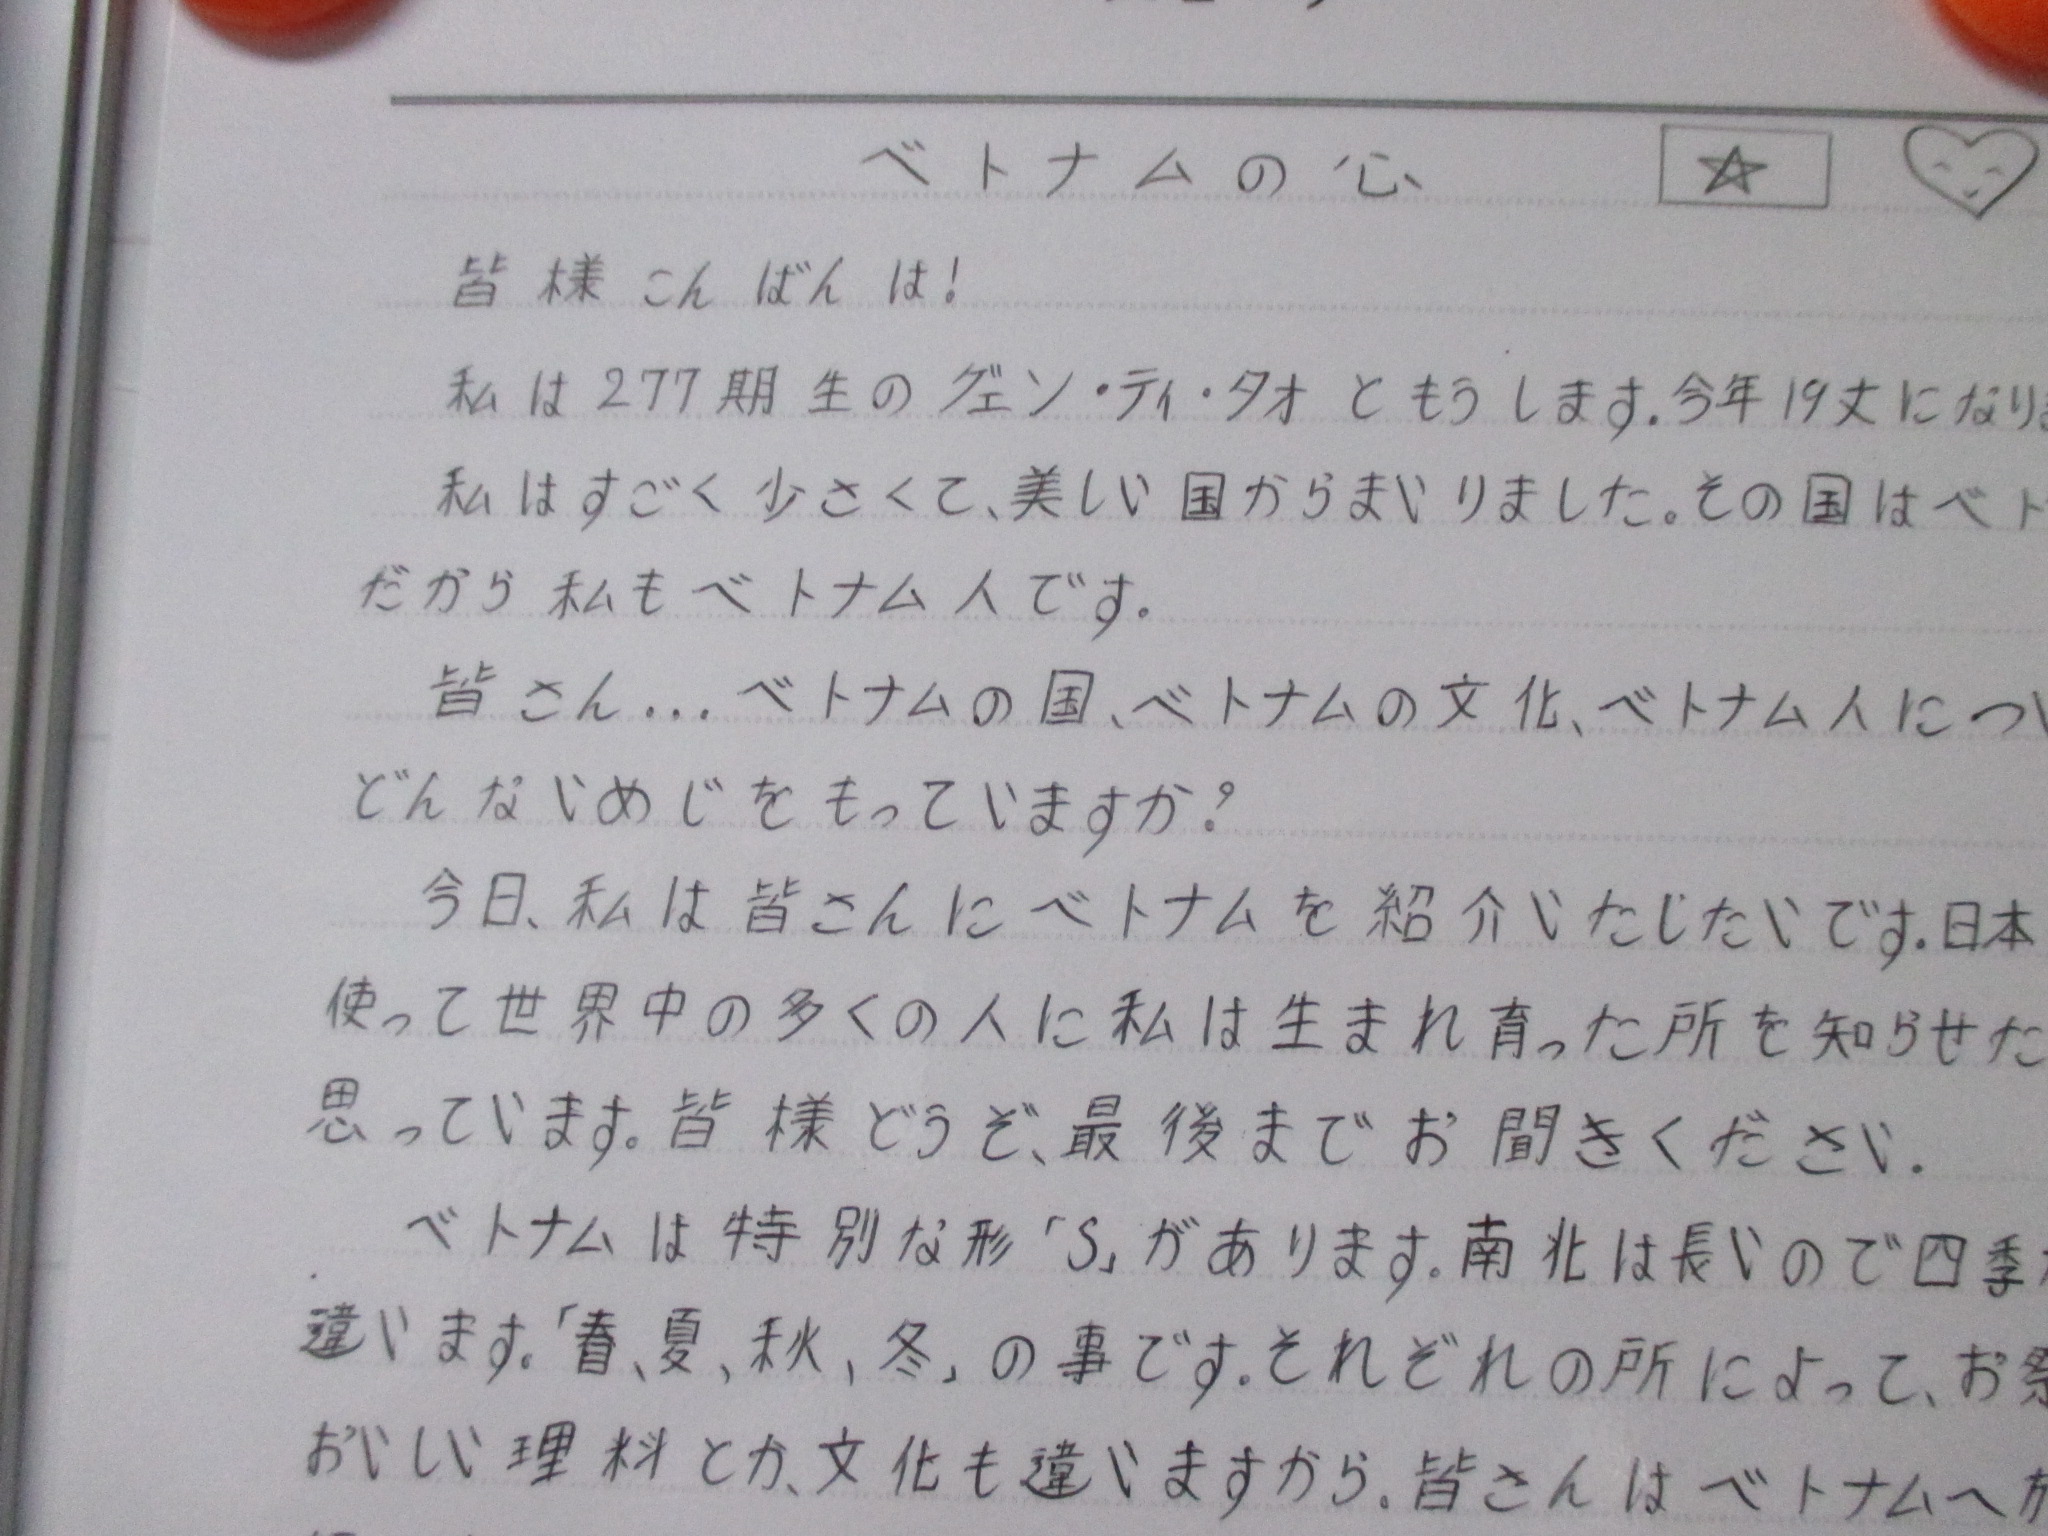 ベトナムの心
皆様こんばんは!
私は277期生のグェン・ティ・タオともうします.今年19才になりま
私はすごく少さくて、美しい国からまいりました。その国はベト
だから私もベトナム人です.
皆さん...ベトナムの国、ベトナムの文化、ベトナム人につい
どんないめじをもっていますか?
今日、私は皆さんにベトナムを紹介いたじたいです.日本
使って世界中の多くの人に私は生まれ育った所を知らせた
思っています。皆様どうぞ、最後までお聞きください.
ベトナムは特別な形「S」があります.南北は長いので四季
違います.「春、夏、秋、冬」の事です.それぞれの所によって、お祭
おいしい理料とか、文化も違いますから.皆さんはベトナムへ